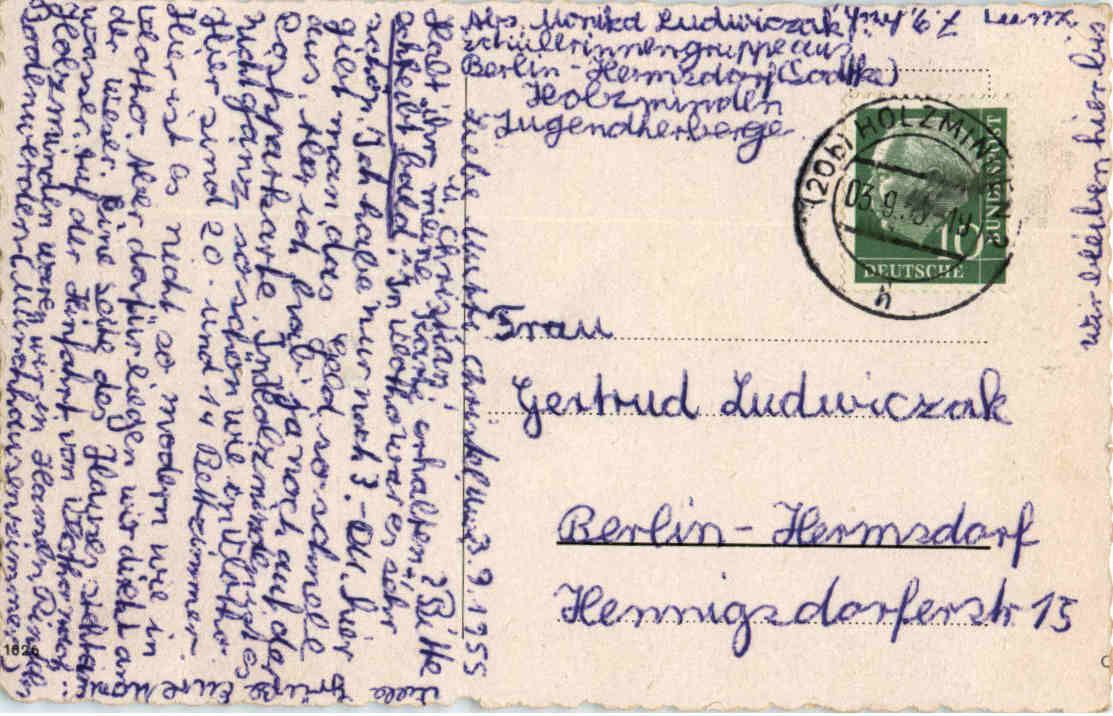 Abs. Monika Ludwiczak
Schülerinnengruppe aus
Berlin-Hermsdorf
Holzminden
Jugendherberge
wir bleiben hier bis
zum 7.9.
(20b) HOLZMINDEN 2
03.9.55-19
h
10
DEUTSCHE
BUNDESPOST
Frau
Gertrud Ludwiczak
Berlin-Hermsdorf
Hennigsdorferstr 15
3.9.1955
Liebe Mutti, Christel,
u Christian!
Habt ihr meine Karte erhalten? Bitte
schreibt bald. In Vlotho war es sehr
schön. Ich habe nur noch 3.-DM. hier
giebt man das Geld so schnell
aus. Aber ich hab ja noch auf der
Postsparkarte. In Holzminden ist es
nicht ganz so schön wie in Vlotho.
Hier sind 20- und 14 Bettzimmer
Hier ist es nicht so modern wie in
Vlotho. Aber dafür liegen wir direkt an
der Weser. Eine Seite des Hauses steht im
Wasser. Auf der Hinfahrt von Vlotho nach
Holzminden waren wir in Hameln, Rinteln
Bodenwerder
Viele Grüße Eure
1626